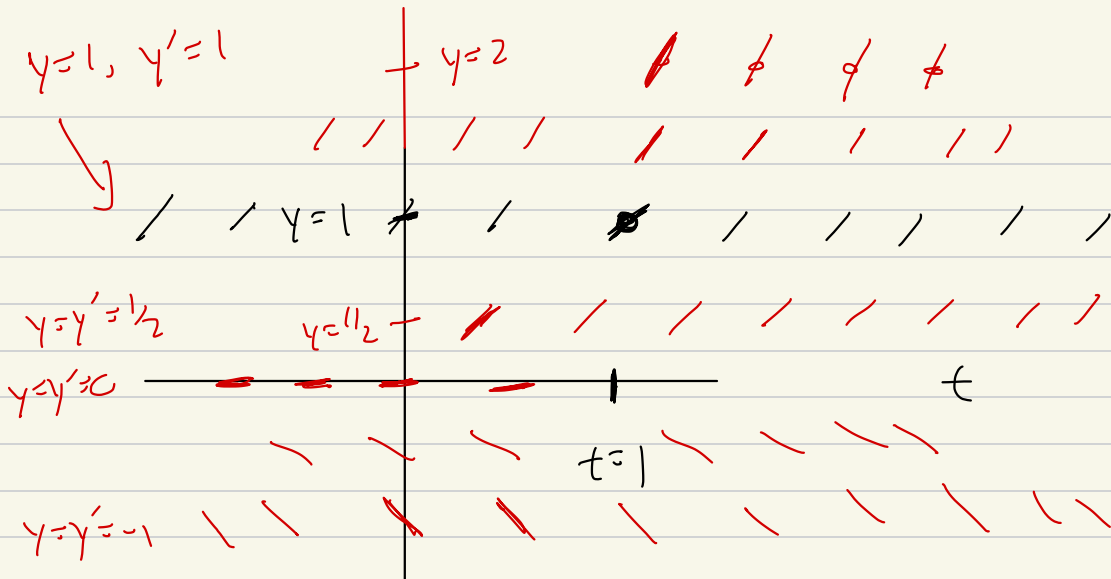 y=1, y'=1
y=2
y=1
y=y'=1/2
y=1/2
y=y'=0
t
t=1
y=y'=-1